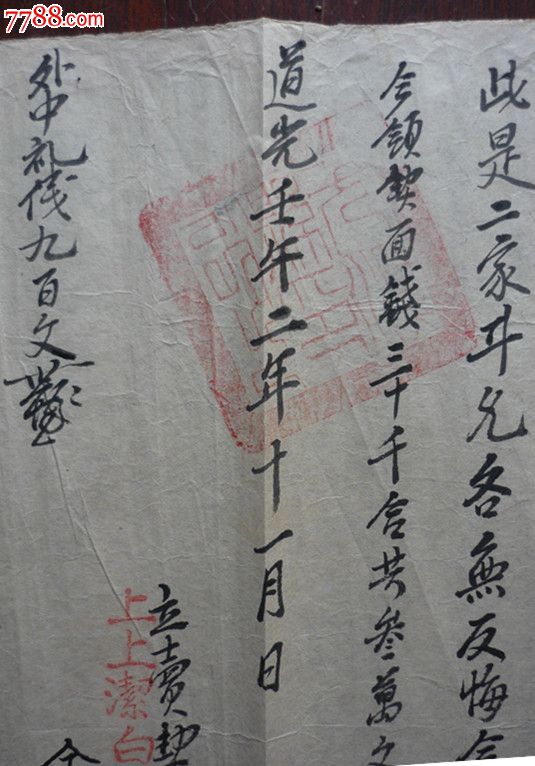 7788.com
此是二家斗允各無反悔合
今領契面錢三十千合共叄萬文
道光壬午二年十一月日
立賣契
上上潔白
外中礼伐九百文